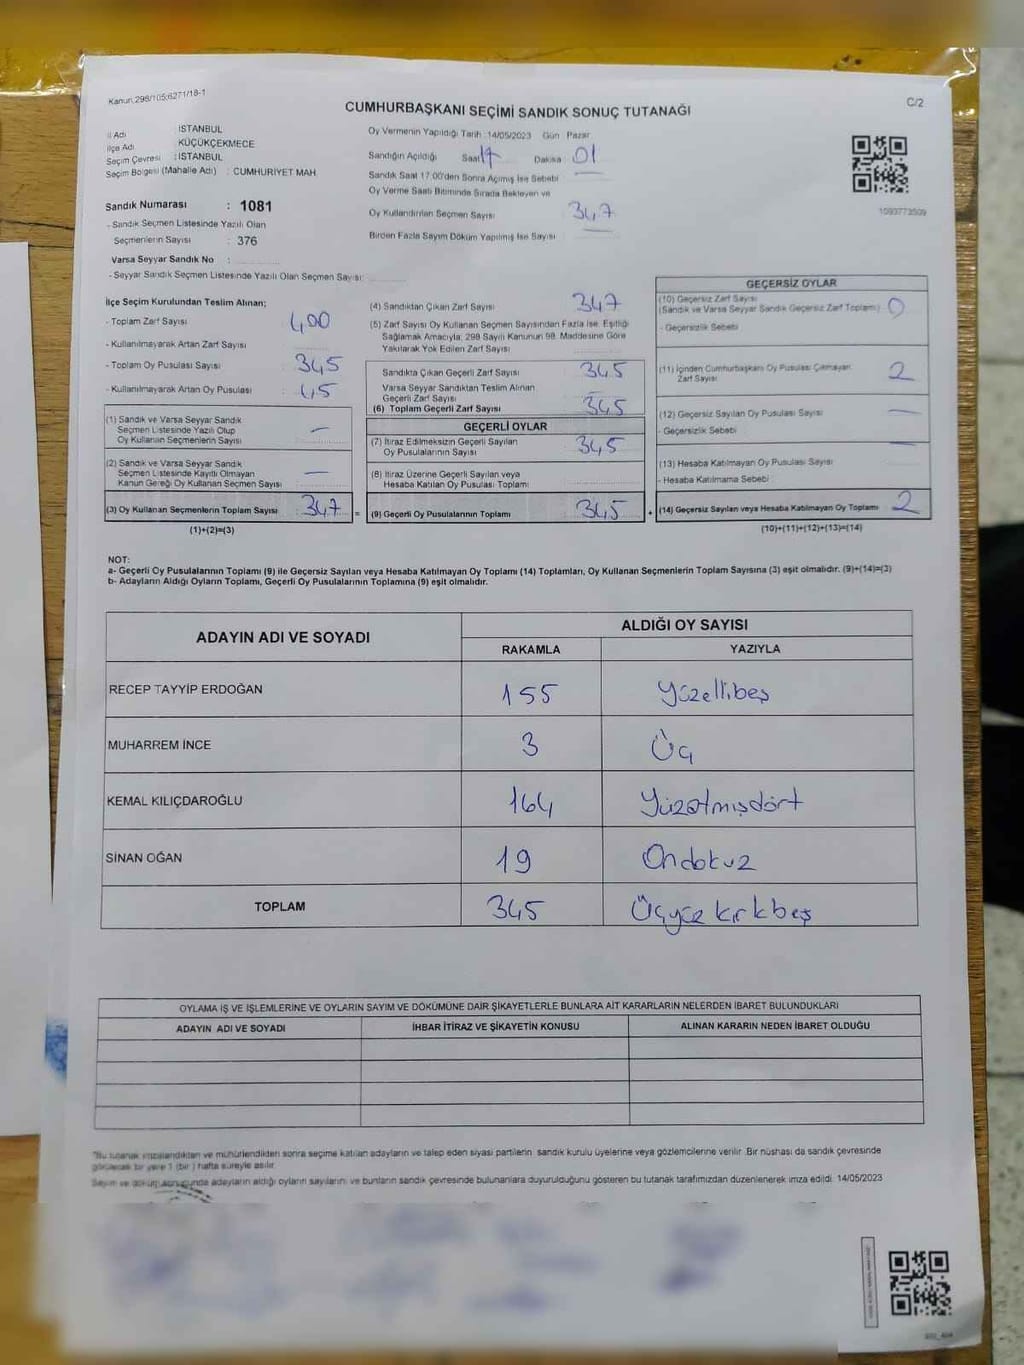 Kanun:298/105;6271/18-1
C/2
CUMHURBAŞKANI SEÇİMİ SANDIK SONUÇ TUTANAĞI
İl Adı : İSTANBUL
İlçe Adı : KÜÇÜKÇEKMECE
Seçim Çevresi : İSTANBUL
Seçim Bölgesi (Mahalle Adı) : CUMHURİYET MAH.
Sandık Numarası : 1081
- Sandık Seçmen Listesinde Yazılı Olan
Seçmenlerin Sayısı : 376
Varsa Seyyar Sandık No :
- Seyyar Sandık Seçmen Listesinde Yazılı Olan Seçmen Sayısı:
Oy Vermenin Yapıldığı Tarih :14/05/2023 Gün Pazar
Sandığın Açıldığı Saat 17 Dakika 01
Sandık Saat 17:00'den Sonra Açılmış İse Sebebi —
Oy Verme Saati Bitiminde Sırada Bekleyen ve
Oy Kullandırılan Seçmen Sayısı 347
Birden Fazla Sayım Döküm Yapılmış İse Sayısı —
1093773509
İlçe Seçim Kurulundan Teslim Alınan;
- Toplam Zarf Sayısı : 400
- Kullanılmayarak Artan Zarf Sayısı :
- Toplam Oy Pusulası Sayısı : 345
- Kullanılmayarak Artan Oy Pusulası : 45
(1) Sandık ve Varsa Seyyar Sandık
Seçmen Listesinde Yazılı Olup
Oy Kullanan Seçmenlerin Sayısı : —
(2) Sandık ve Varsa Seyyar Sandık
Seçmen Listesinde Kayıtlı Olmayan
Kanun Gereği Oy Kullanan Seçmen Sayısı : —
(3) Oy Kullanan Seçmenlerin Toplam Sayısı : 347
(1)+(2)=(3)
(4) Sandıktan Çıkan Zarf Sayısı : 347
(5) Zarf Sayısı Oy Kullanan Seçmen Sayısından Fazla İse, Eşitliği
Sağlamak Amacıyla; 298 Sayılı Kanunun 98. Maddesine Göre
Yakılarak Yok Edilen Zarf Sayısı :
Sandıkta Çıkan Geçerli Zarf Sayısı : 345
Varsa Seyyar Sandıktan Teslim Alınan
Geçerli Zarf Sayısı
(6) Toplam Geçerli Zarf Sayısı : 345
GEÇERLİ OYLAR
(7) İtiraz Edilmeksizin Geçerli Sayılan
Oy Pusulalarının Sayısı : 345
(8) İtiraz Üzerine Geçerli Sayılan veya
Hesaba Katılan Oy Pusulası Toplamı :
= (9) Geçerli Oy Pusulalarının Toplamı : 345 +
GEÇERSİZ OYLAR
(10) Geçersiz Zarf Sayısı
(Sandık ve Varsa Seyyar Sandık Geçersiz Zarf Toplamı) : 0
- Geçersizlik Sebebi :
(11) İçinden Cumhurbaşkanı Oy Pusulası Çıkmayan
Zarf Sayısı : 2
(12) Geçersiz Sayılan Oy Pusulası Sayısı : —
- Geçersizlik Sebebi :
(13) Hesaba Katılmayan Oy Pusulası Sayısı : —
- Hesaba Katılmama Sebebi :
(14) Geçersiz Sayılan veya Hesaba Katılmayan Oy Toplamı : 2
(10)+(11)+(12)+(13)=(14)
NOT:
a- Geçerli Oy Pusulalarının Toplamı (9) ile Geçersiz Sayılan veya Hesaba Katılmayan Oy Toplamı (14) Toplamları, Oy Kullanan Seçmenlerin Toplam Sayısına (3) eşit olmalıdır. (9)+(14)=(3)
b- Adayların Aldığı Oyların Toplamı, Geçerli Oy Pusulalarının Toplamına (9) eşit olmalıdır.
ADAYIN ADI VE SOYADI ALDIĞI OY SAYISI
RAKAMLA YAZIYLA
RECEP TAYYİP ERDOĞAN 155 Yüzellibeş
MUHARREM İNCE 3 Üç
KEMAL KILIÇDAROĞLU 164 Yüzatmışdört
SİNAN OĞAN 19 Ondokuz
TOPLAM 345 Üçyüzkırkbeş
OYLAMA İŞ VE İŞLEMLERİNE VE OYLARIN SAYIM VE DÖKÜMÜNE DAİR ŞİKAYETLERLE BUNLARA AİT KARARLARIN NELERDEN İBARET BULUNDUKLARI
ADAYIN ADI VE SOYADI İHBAR İTİRAZ VE ŞİKAYETİN KONUSU ALINAN KARARIN NEDEN İBARET OLDUĞU
"Bu tutanak imzalandıktan ve mühürlendikten sonra seçime katılan adayların ve talep eden siyasi partilerin sandık kurulu üyelerine veya gözlemcilerine verilir. Bir nüshası da sandık çevresinde
görülecek bir yere 1 (bir) hafta süreyle asılır.
Sayım ve döküm sonucunda adayların aldığı oyların sayılarını ve bunların sandık çevresinde bulunanlara duyurulduğunu gösteren bu tutanak tarafımızdan düzenlenerek imza edildi. 14/05/2023